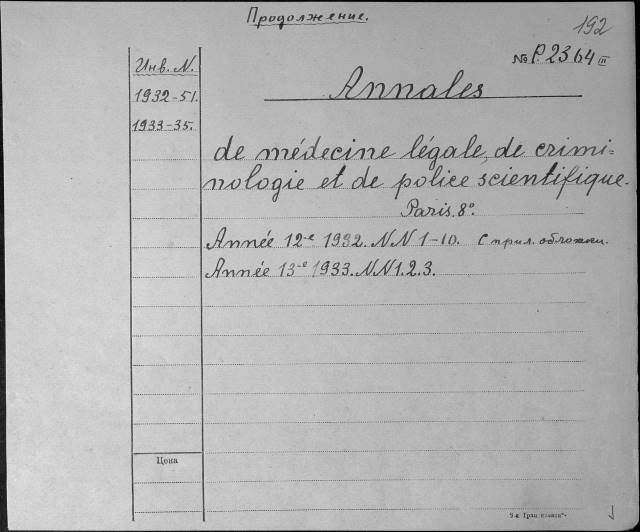 Продолжение.
192
Инв. N.
№ P. 2364 III
1932-51.
Annales
1933-35.
de médecine légale, de crimi=
nologie et de police scientifique.
Paris. 8°.
Année 12-e 1932. NN 1-10. С прил. обложки.
Année 13-e 1933. NN 1. 2. 3.
Цена